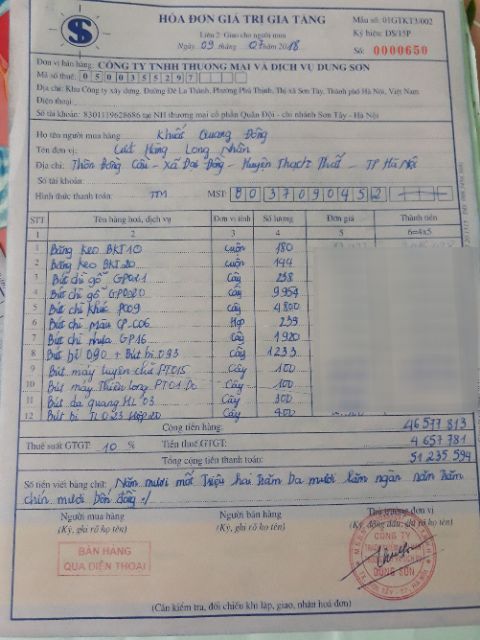 HÓA ĐƠN GIÁ TRỊ GIA TĂNG
Liên 2: Giao cho người mua
Ngày 09 tháng 07 20 18
Mẫu số: 01GTKT3/002
Ký hiệu: DS/15P
Số: 0000650
Đơn vị bán hàng: CÔNG TY TNHH THƯƠNG MẠI VÀ DỊCH VỤ DUNG SƠN
Mã số thuế: 0500355297
Địa chỉ: Khu Công ty xây dựng, Đường Đê La Thành, Phường Phú Thịnh, Thị xã Sơn Tây, Thành phố Hà Nội, Việt Nam
Điện thoại:
Số tài khoản: 8301119628686 tại NH thương mại cổ phần Quân Đội - chi nhánh Sơn Tây - Hà Nội
Họ tên người mua hàng: Khuất Quang Đông
Tên đơn vị: Cửa Hàng Long Nhân
Địa chỉ: Thôn Đồng Cầu - Xã Đại Đồng - Huyện Thạch Thất - TP Hà Nội
Số tài khoản:
Hình thức thanh toán: TTM MST: 8037090452
STT Tên hàng hoá, dịch vụ Đơn vị tính Số lượng Đơn giá Thành tiền
1 2 3 4 5 6=4x5
1 Băng keo BKT10 cuộn 180
2 Băng keo BKT20 cuộn 144
3 Bút chì gỗ GP011 Cây 238
4 Bút chì gỗ GP020 Cây 9954
5 Bút chì khúc P009 Cây 4800
6 Bút chì màu CP-C06 Hộp 239
7 Bút chì nhựa GP16 Cây 1920
8 Bút bi 090 + Bút bi 093 Cây 1233
9 Bút máy luyện chữ PT015 Cây 100
10 Bút máy Thiên Long PT01 Cây 100
11 Bút dạ quang HL 03 Cây 300
12 Bút bi TL023 Hộp 20 Cây 400
Cộng tiền hàng: 46 577 813
Thuế suất GTGT: 10 % Tiền thuế GTGT: 4 657 781
Tổng cộng tiền thanh toán: 51 235 594
Số tiền viết bằng chữ: Năm mươi mốt Triệu hai Trăm ba mươi lăm ngàn năm Trăm
chín mươi bốn đồng ./
Người mua hàng
(Ký, ghi rõ họ tên)
Người bán hàng
(Ký, ghi rõ họ tên)
Thủ trưởng đơn vị
(Ký, đóng dấu, ghi rõ họ tên)
BÁN HÀNG
QUA ĐIỆN THOẠI
CÔNG TY
DUNG SƠN
(Cần kiểm tra, đối chiếu khi lập, giao, nhận hoá đơn)